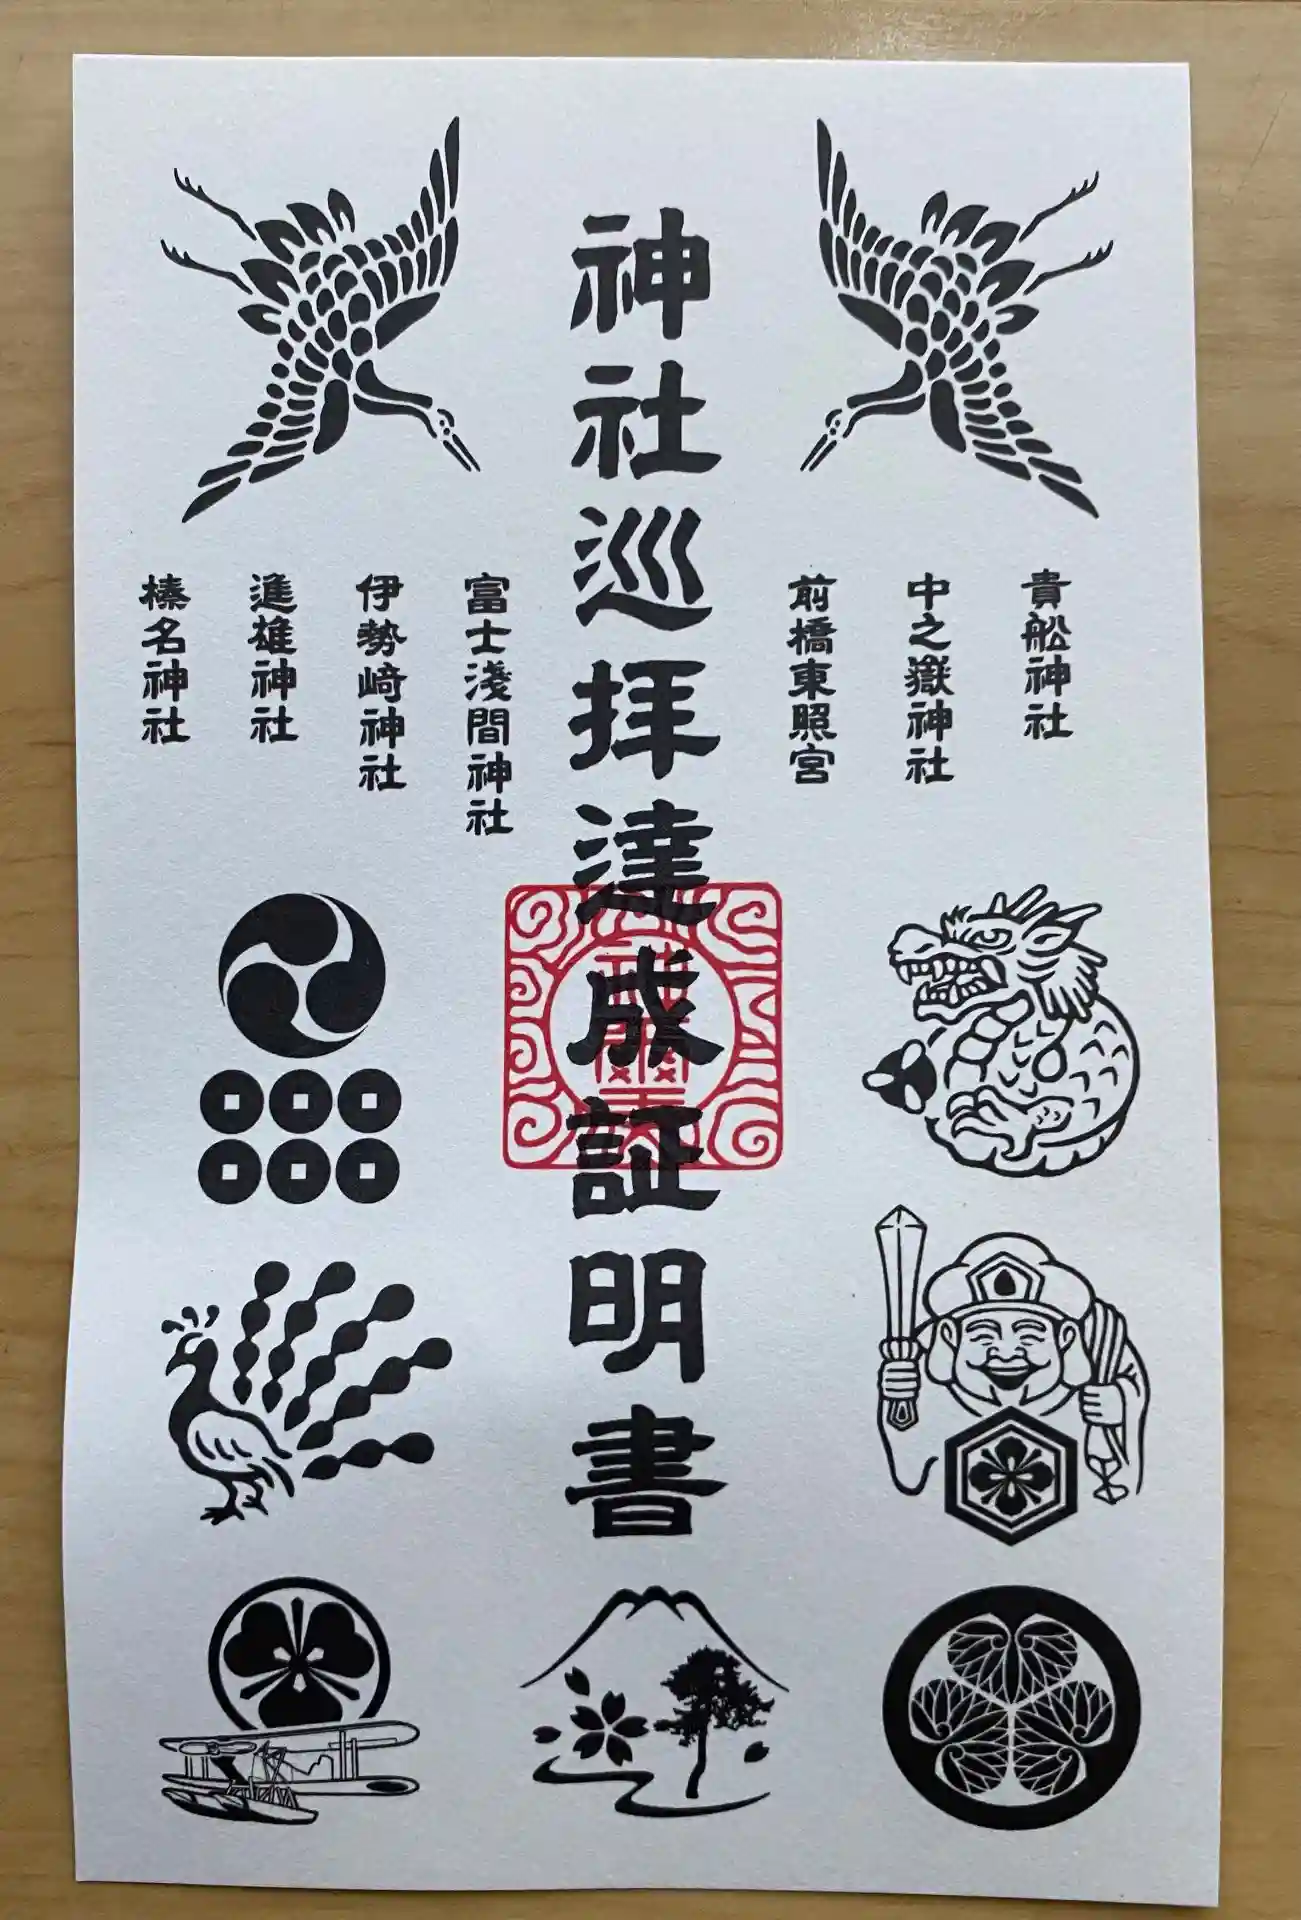 貴船神社
中之嶽神社
前橋東照宮
神社巡拝達成証明書
富士浅間神社
伊勢崎神社
進雄神社
榛名神社